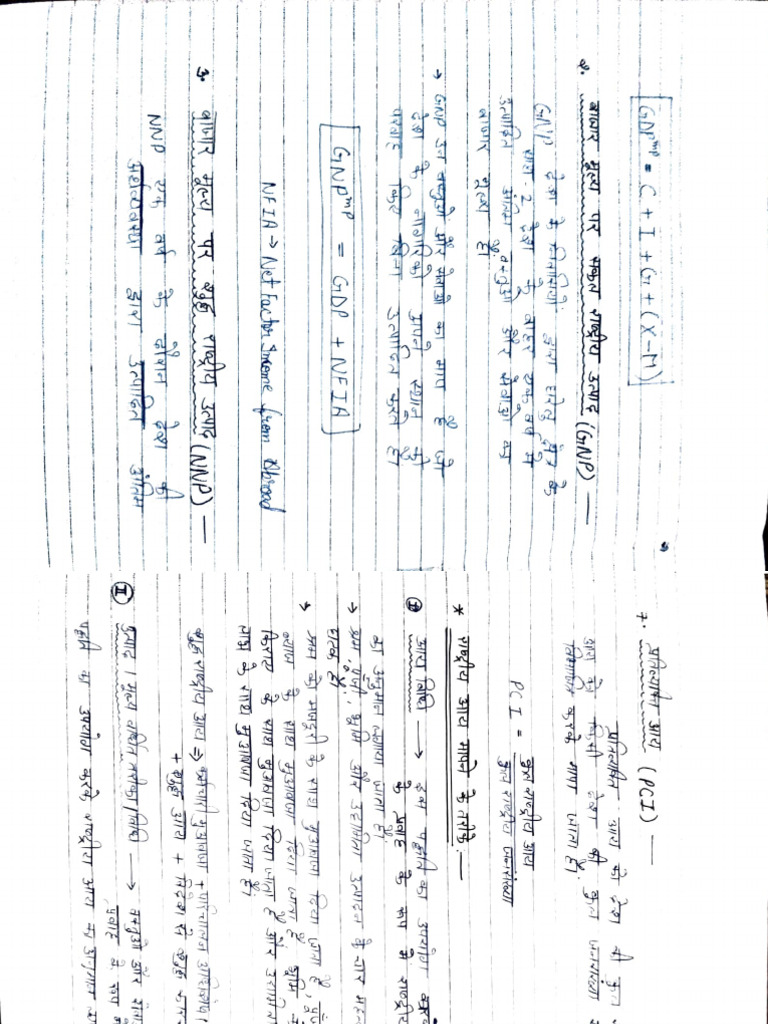 [GDPmp = C + I + G + (X-M)]
2. बाजार मूल्य पर सकल राष्ट्रीय उत्पाद (GNP) —
GNP देश के निवासियों द्वारा घरेलू क्षेत्र के
साथ-2 देश के बाहर एक वर्ष में
उत्पादित अंतिम वस्तुओं और सेवाओं का
बाजार मूल्य है।
→ GNP उन वस्तुओं और सेवाओं का माप है जो
देश के नागरिकों अपने स्थान की
परवाह किए बिना उत्पादित करते हैं।
[GNPmp = GDP + NFIA]
NFIA → Net Factor Income from Abroad
3. बाजार मूल्य पर शुद्ध राष्ट्रीय उत्पाद (NNP) —
NNP एक वर्ष के दौरान देश की
अर्थव्यवस्था द्वारा उत्पादित अंतिम
7. प्रतिव्यक्ति आय (PCI) —
प्रतिव्यक्ति आय को देश की कुल
आय को किसी देश की कुल जनसंख्या
विभाजित करके मापा जाता है।
PCI = कुल राष्ट्रीय आय
कुल राष्ट्रीय जनसंख्या
* राष्ट्रीय आय मापने के तरीके :—
I आय विधि → इस पद्धति का उपयोग
के प्रवाह के रूप में राष्ट्रीय
का अनुमान लगाया जाता है।
→ श्रम, पूंजी, भूमि और उद्यमिता उत्पादन के चार
घटक हैं।
→ श्रम को मजदूरी के साथ मुआवजा दिया जाता है,
ब्याज के साथ मुआवजा दिया जाता है, भूमि
किराए के साथ मुआवजा दिया जाता है और
लाभ के साथ मुआवजा दिया जाता है।
शुद्ध राष्ट्रीय आय ⇒ कर्मचारी मुआवजा + परिचालन अधिशेष
+ शुद्ध आय + विदेश से शुद्ध
II उत्पाद / मूल्य वर्धित तरीका/विधि → वस्तुओं और
प्रवाह के रूप
पद्धति का उपयोग करके राष्ट्रीय आय का अनुमान